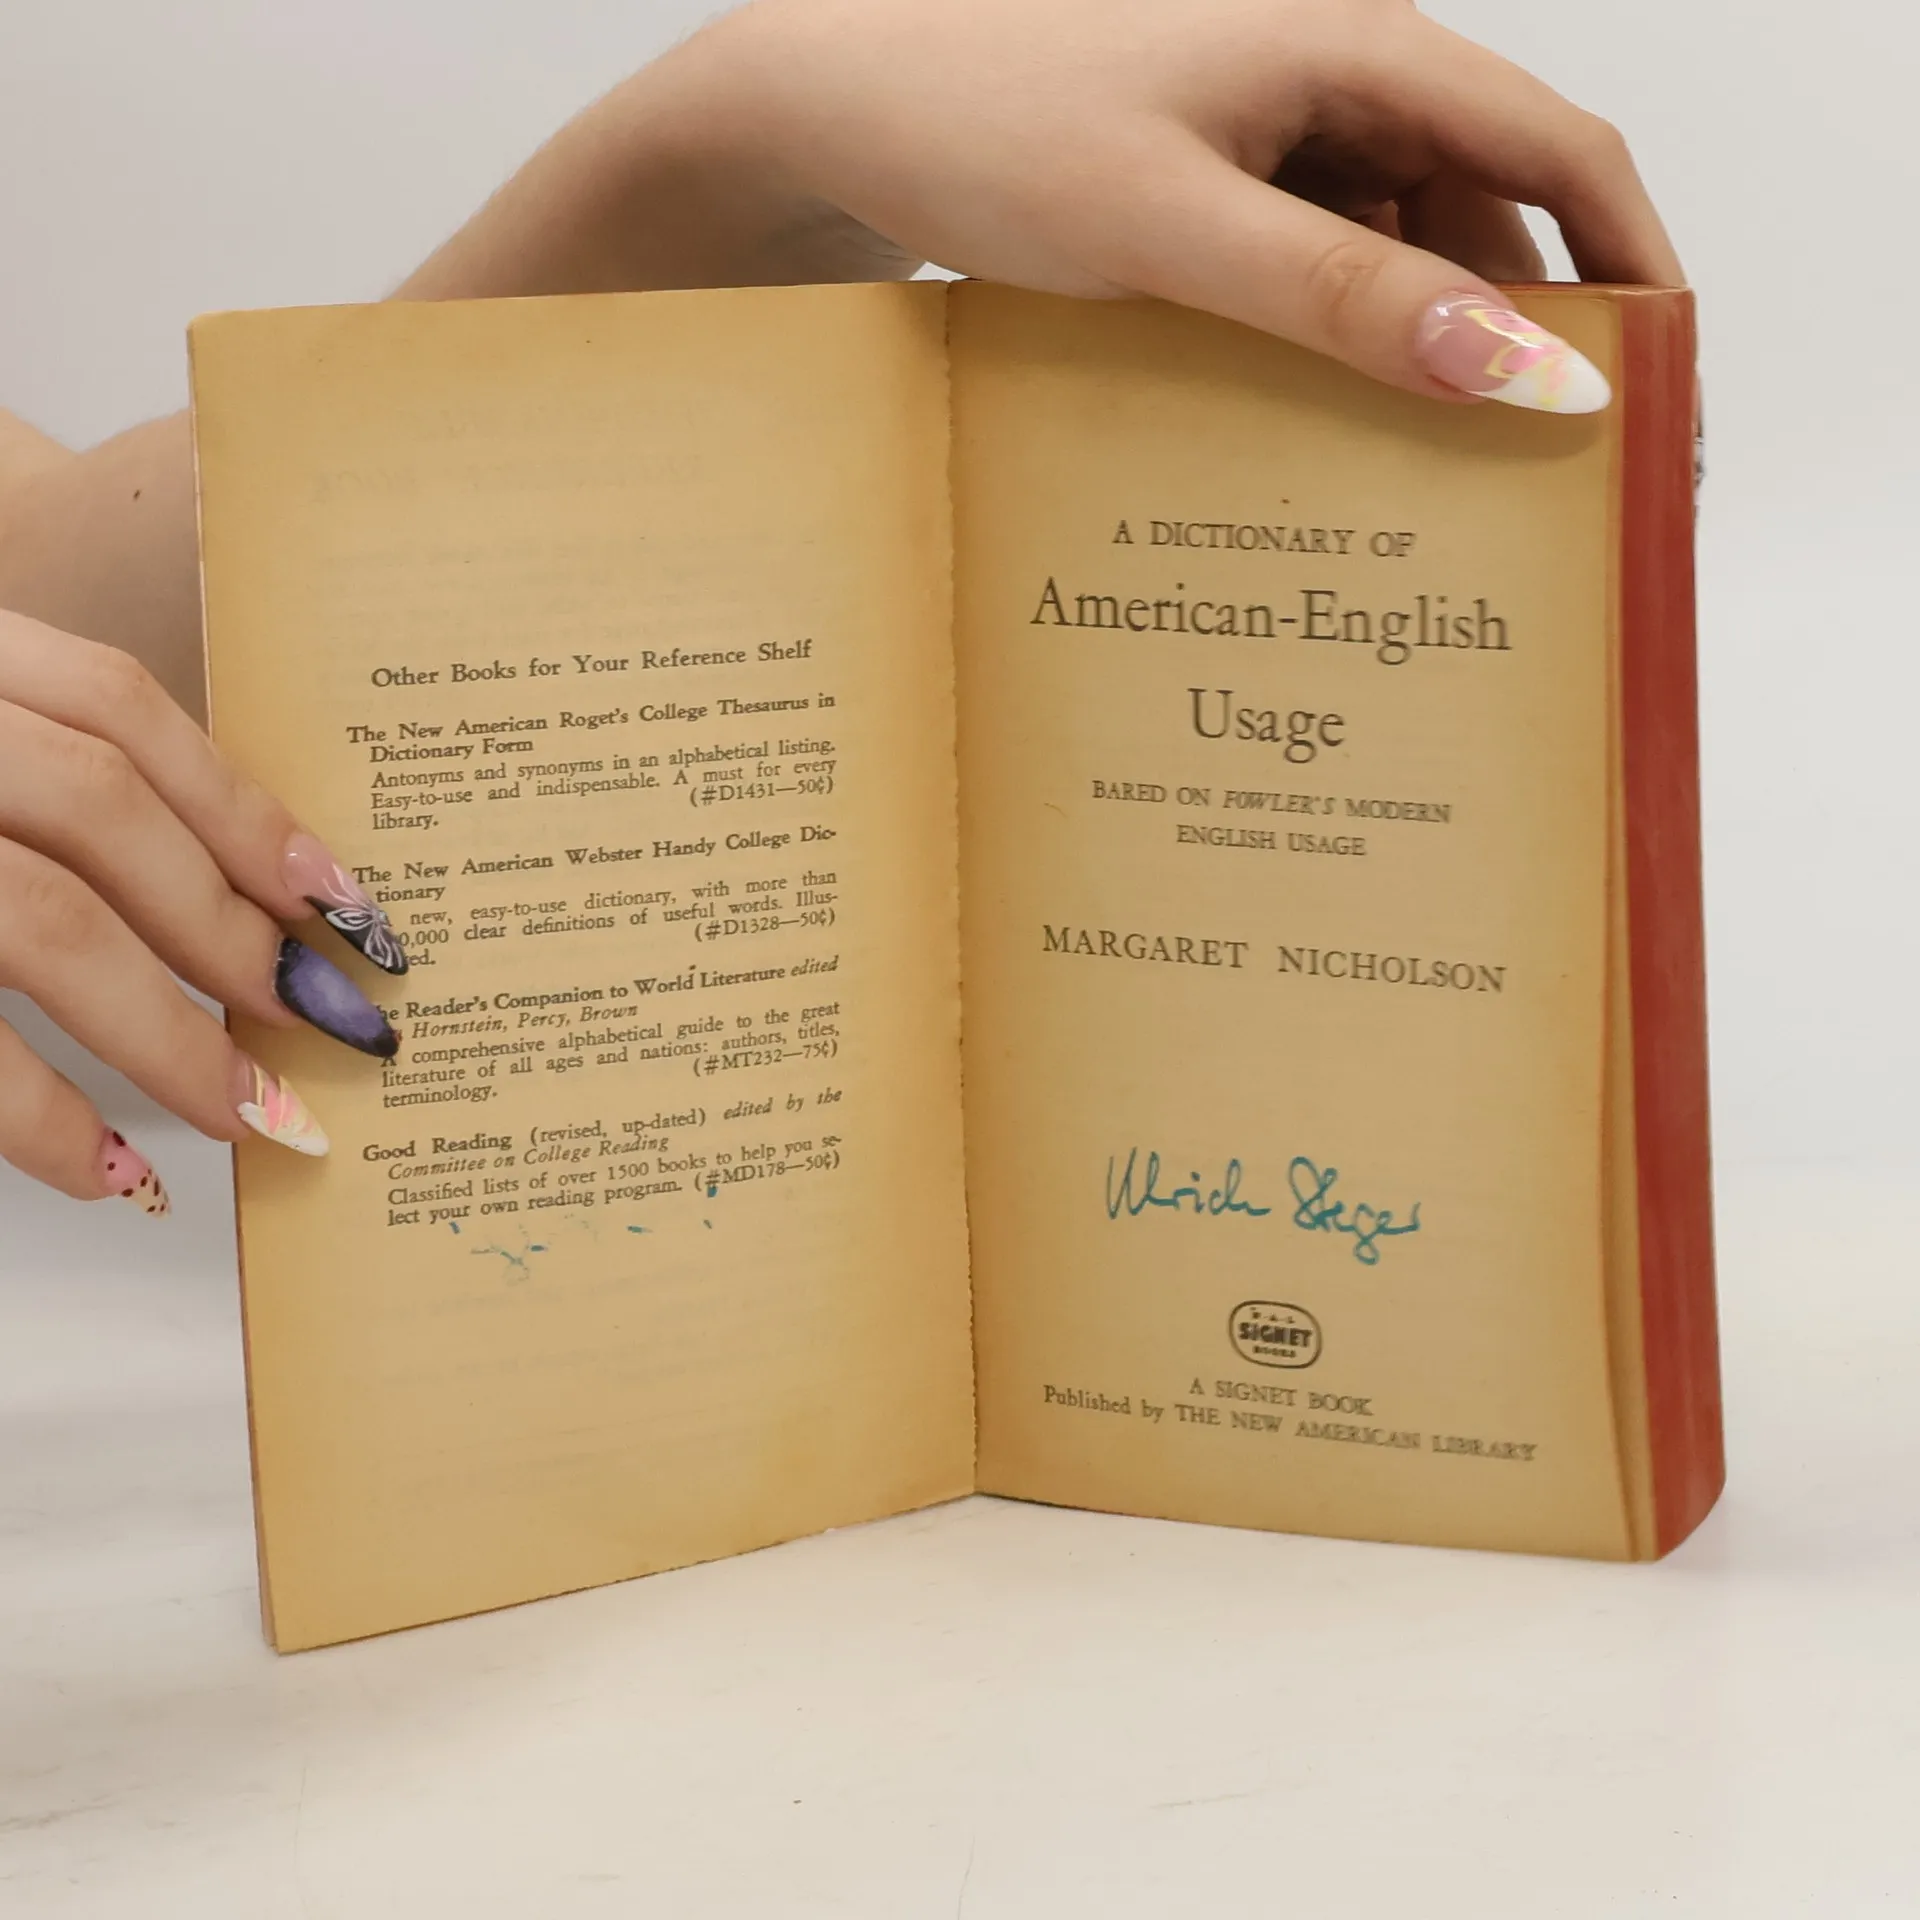 Other Books for Your Reference Shelf
The New American Roget's College Thesaurus in
Dictionary Form
Antonyms and synonyms in an alphabetical listing.
Easy-to-use and indispensable. A must for every
library. (#D1431—50¢)
The New American Webster Handy College Dic-
tionary
new, easy-to-use dictionary, with more than
0,000 clear definitions of useful words. Illus-
ed. (#D1328—50¢)
he Reader's Companion to World Literature edited
Hornstein, Percy, Brown
A comprehensive alphabetical guide to the great
literature of all ages and nations: authors, titles,
terminology. (#MT232—75¢)
Good Reading (revised, up-dated) edited by the
Committee on College Reading
Classified lists of over 1500 books to help you se-
lect your own reading program. (#MD178—50¢)
A DICTIONARY OF
American-English
Usage
BARED ON FOWLER'S MODERN
ENGLISH USAGE
MARGARET NICHOLSON
Ulrich Steger
N·A·L
SIGNET
BOOKS
A SIGNET BOOK
Published by THE NEW AMERICAN LIBRARY